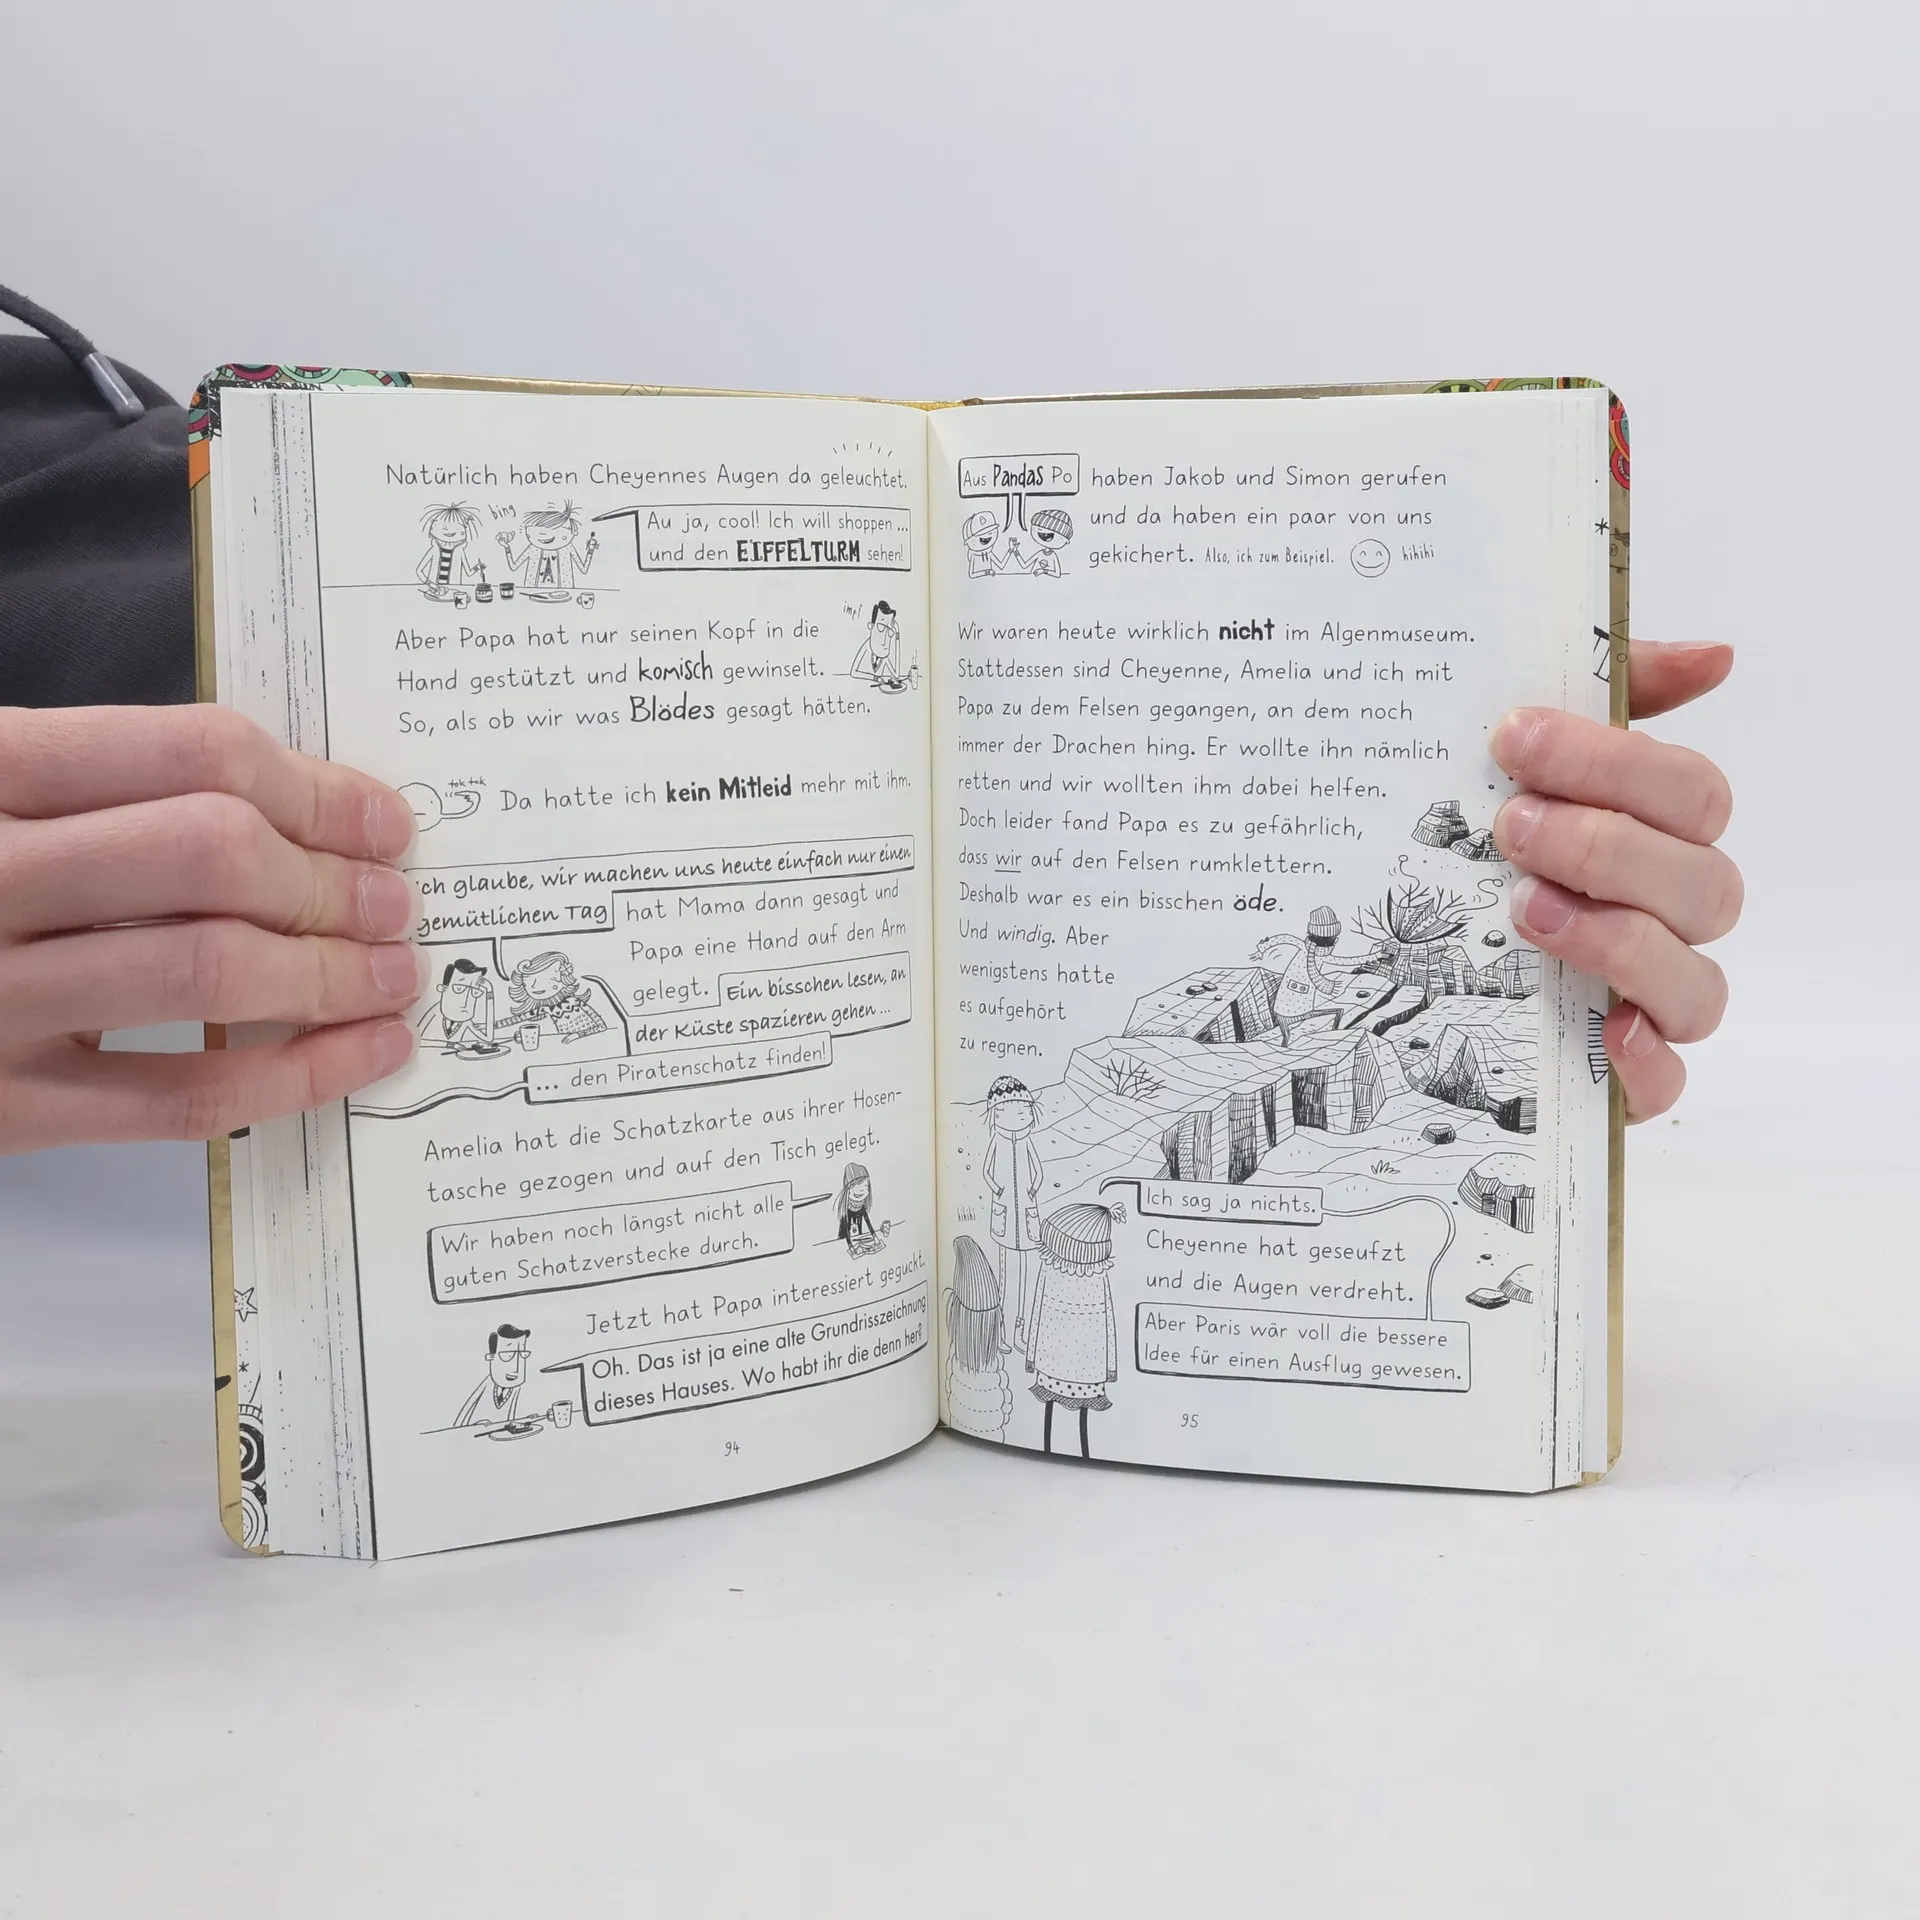 Natürlich haben Cheyennes Augen da geleuchtet.
bing
Au ja, cool! Ich will shoppen ...
und den EIFFELTURM sehen!
impf
Aber Papa hat nur seinen Kopf in die
Hand gestützt und komisch gewinselt.
So, als ob wir was Blödes gesagt hätten.
tok tok
Da hatte ich kein Mitleid mehr mit ihm.
ch glaube, wir machen uns heute einfach nur einen
gemütlichen Tag
hat Mama dann gesagt und
Papa eine Hand auf den Arm
gelegt. Ein bisschen lesen, an
der Küste spazieren gehen ...
... den Piratenschatz finden!
Amelia hat die Schatzkarte aus ihrer Hosen-
tasche gezogen und auf den Tisch gelegt.
Wir haben noch längst nicht alle
guten Schatzverstecke durch.
Jetzt hat Papa interessiert geguckt.
Oh. Das ist ja eine alte Grundrisszeichnung
dieses Hauses. Wo habt ihr die denn her?
94
Aus Pandas Po haben Jakob und Simon gerufen
und da haben ein paar von uns
gekichert. Also, ich zum Beispiel. hihihi
Wir waren heute wirklich nicht im Algenmuseum.
Stattdessen sind Cheyenne, Amelia und ich mit
Papa zu dem Felsen gegangen, an dem noch
immer der Drachen hing. Er wollte ihn nämlich
retten und wir wollten ihm dabei helfen.
Doch leider fand Papa es zu gefährlich,
dass wir auf den Felsen rumklettern.
Deshalb war es ein bisschen öde.
Und windig. Aber
wenigstens hatte
es aufgehört
zu regnen.
hihihi
Ich sag ja nichts.
Cheyenne hat geseufzt
und die Augen verdreht.
Aber Paris wär voll die bessere
Idee für einen Ausflug gewesen.
95